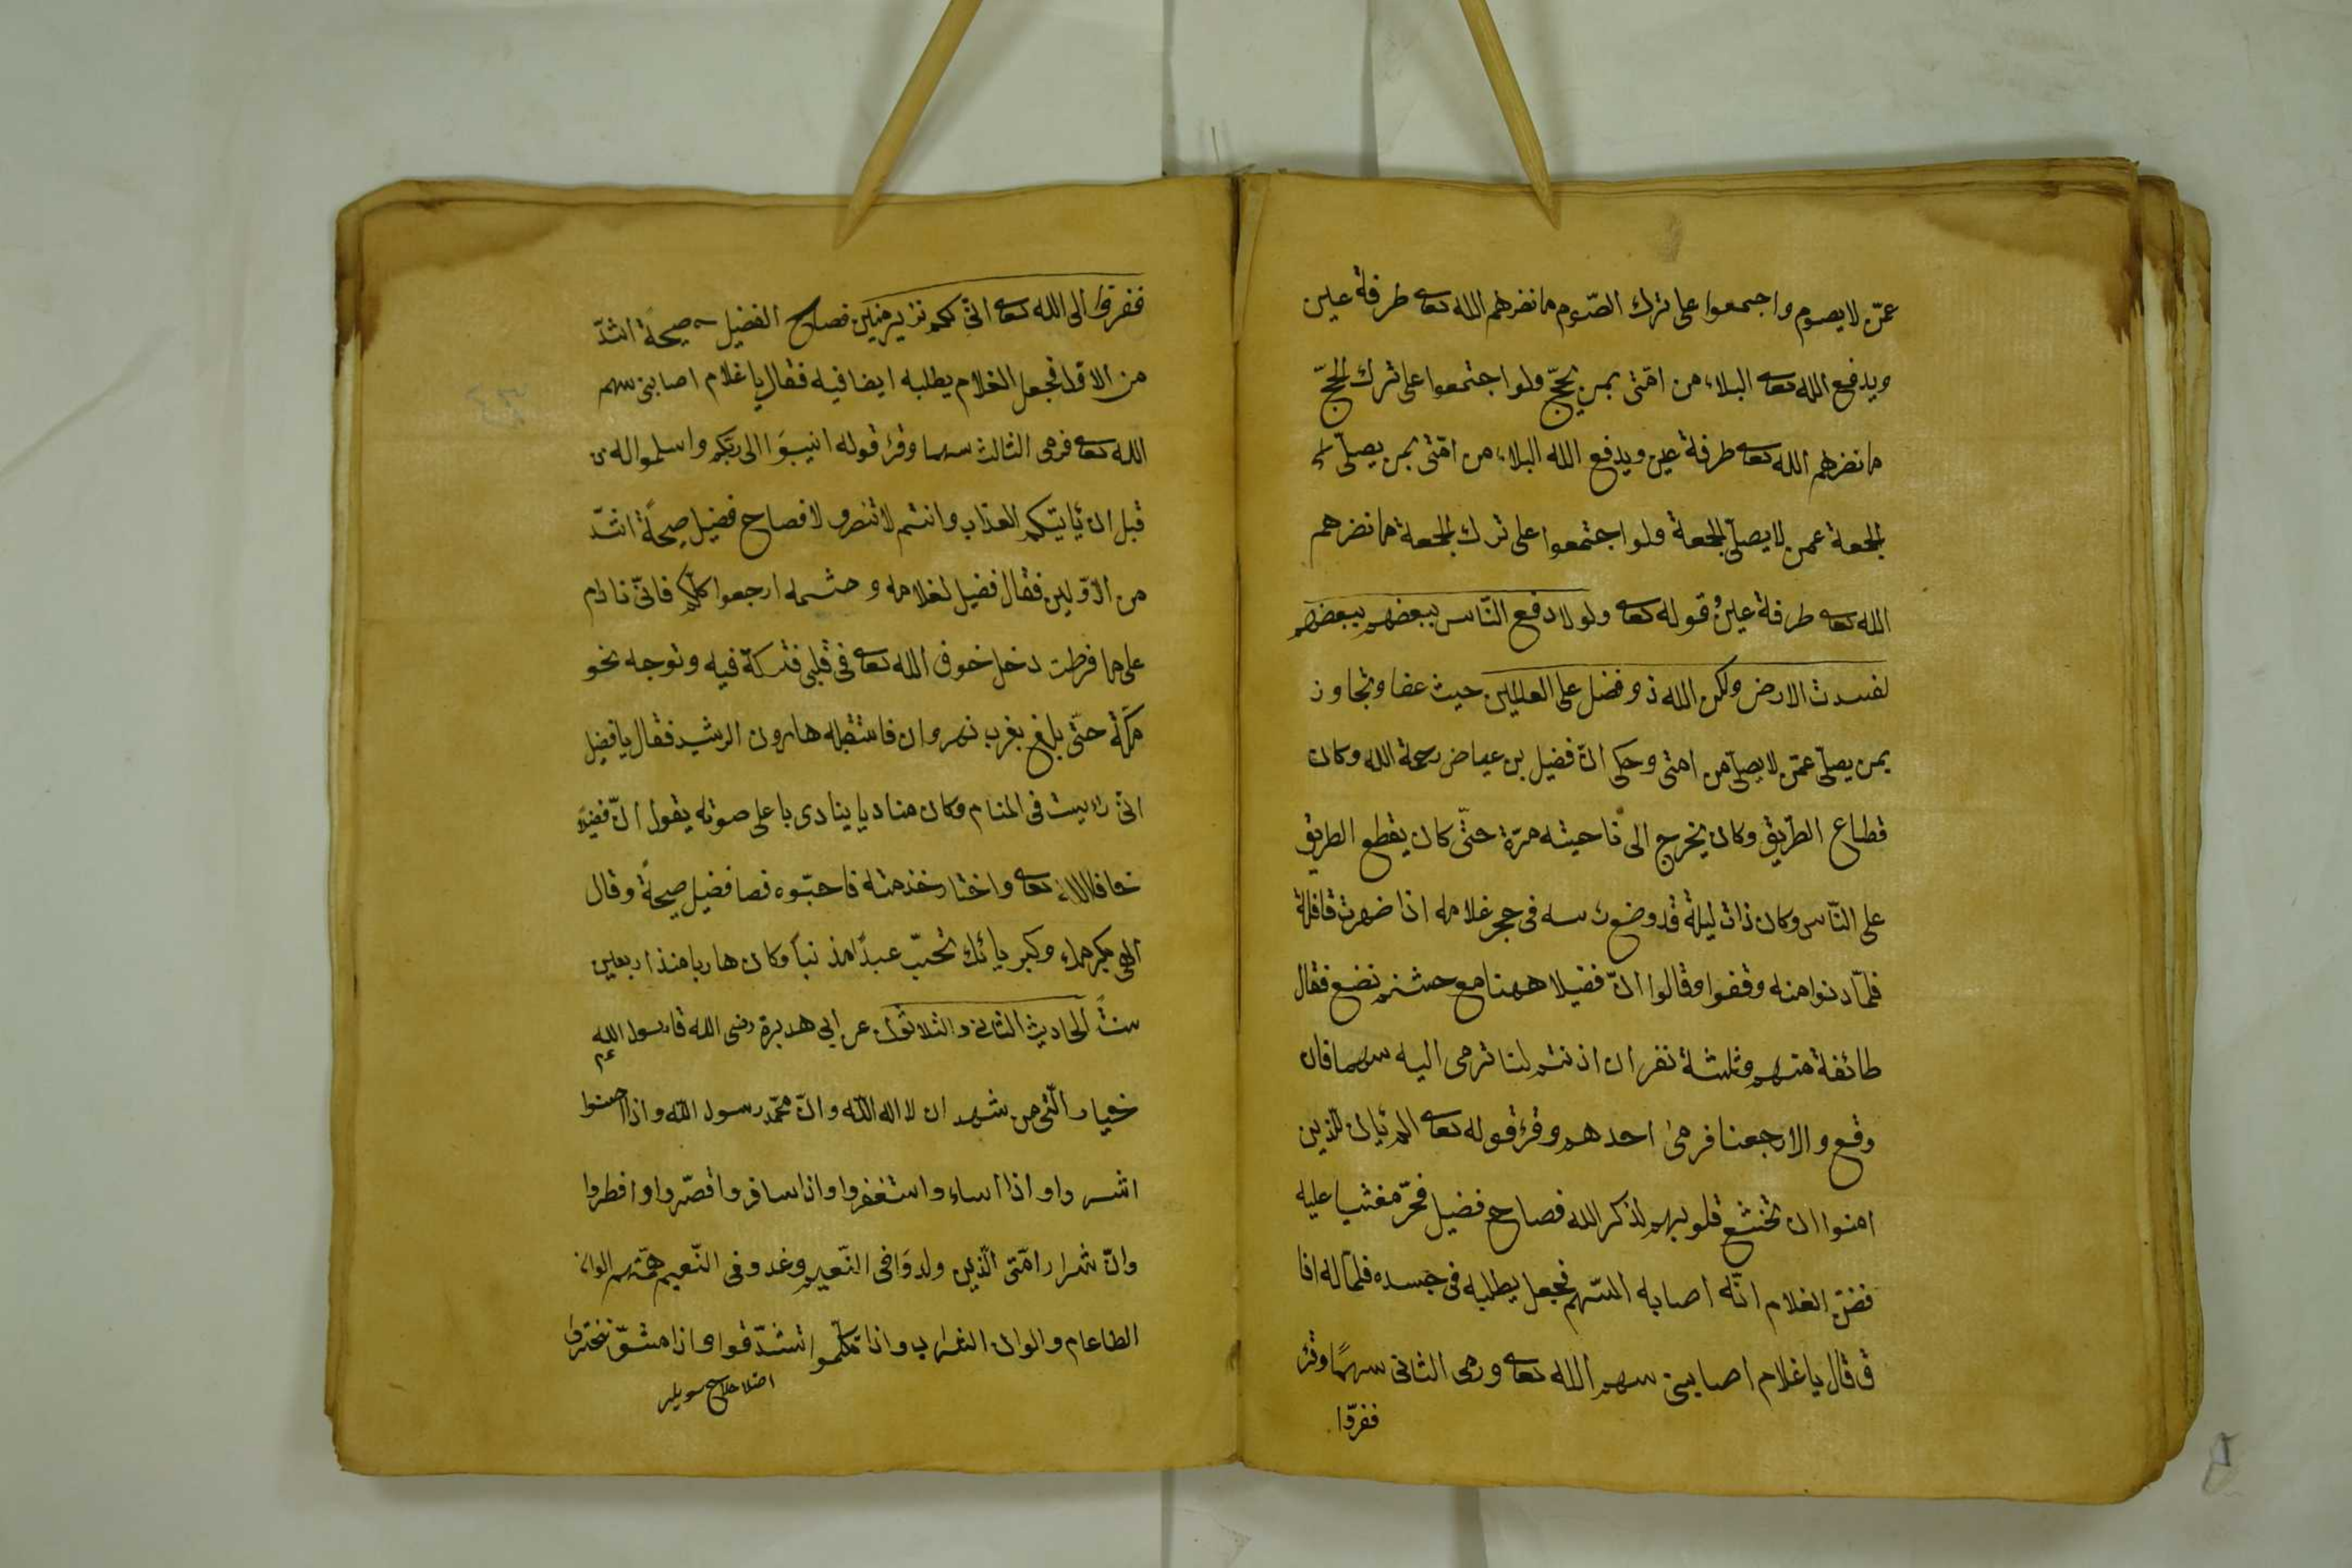 عمّن لا يصوم واجمعوا على ترك الصّوم ما نضرهم الله تعالى طرفة عين
ويدفع الله تعالى البلاء من امّتى بمن يحجّ ولو اجتمعوا على ترك الحجّ
ما نضرهم الله تعالى طرفة عين ويدفع الله البلاء من امّتى بمن يصلّى
الجمعة عمن لا يصلّى الجمعة ولو اجتمعوا على ترك الجمعة ما نضرهم
الله تعالى طرفة عين وقوله تعالى ولولا دفع النّاس ببعضهم ببعضهم
لفسدت الارض ولكن الله ذو فضل على العالمين حيث عفا وتجاوز
بمن يصلّى عمّن لا يصلّى من امتى وحكى انّ فضيل بن عياض رحمة الله وكان
قطاع الطّريق وكان يخرج الى ناحيته مرّة حتّى كان يقطع الطريق
على النّاس وكان ذات ليلة قد وضع رسه فى حجر غلامه اذا ضهرت قافلة
فلمّا دنوا منه وقفوا وقالوا انّ فضيلا ههنا مع حشنم نضع فقال
طائفة منهم وثلثة نفر ان اذنتم لنا نرمى اليه سهما فان
وقع والا رجعنا فرمى احدهم وقرئ قوله تعالى الم يأن للّذين
امنوا ان تخشع قلوبهم لذكر الله فصاح فضيل فخرّ مغشيا عليه
فضنّ الغلام انّه اصابه السّهم فجعل يطلبه فى جسده فلما له افا
ق قال يا غلام اصابنى سهم الله تعالى ورمى الثانى سهمًا وقرئ
ففرّوا
ففروا الى الله تعالى انّى لكم نذير مبين فصاح الفضيل صيحةً اشدّ
من الاوّل فجعل الغلام يطلبه ايضا فيه فقال يا غلام اصابنى سهم
الله تعالى فرمى الثالث سهما وقرئ قوله انيبوَا الى ربّكم واسلموا له من
قبل ان يأتيتكم العذاب وانتم لا تنصرو لا فصاح فضيل صيحةً اشدّ
من الاوّلين فقال فضيل لغلامه وحشمه ارجعوا كلّكم فانّى نادم
على ما فرطت دخل خوف الله تعالى فى قلبى فتركة فيه وتوجه نحو
مكّة حتّى بلغ بغرب نهروان فاستقبله هارون الرشيد فقال يا فضيل
انى رائيت فى المنام وكان مناديا ينادى باعلى صوته يقول انّ فضيلا
خاف الله تعالى واختار خدمته فاحبّوه فصا فضيل صيحةً وقال
الهى بكرمك وكبريائك تحبّ عبدًا مذنباً وكان هاربا منذ اربعين
سنتً الحاديث الثانى والثلاثون عن ابي هريرة رضى الله قا رسول الله
عم
خيار امّتى من شهد ان لا اله الا الله وانّ محمّد رسول الله واذا احسنوا
اشروا واذا اساء واستغفروا واذا سافروا قصّروا وافطروا
وانّ شرار امّتى الّذين ولدوَا فى النّعيم وغدو فى النّعيم همّتهم الوان
الطاعام والوان الشراب واذا تكلّموا تشدّقوا واذا مشوّ تبخترو